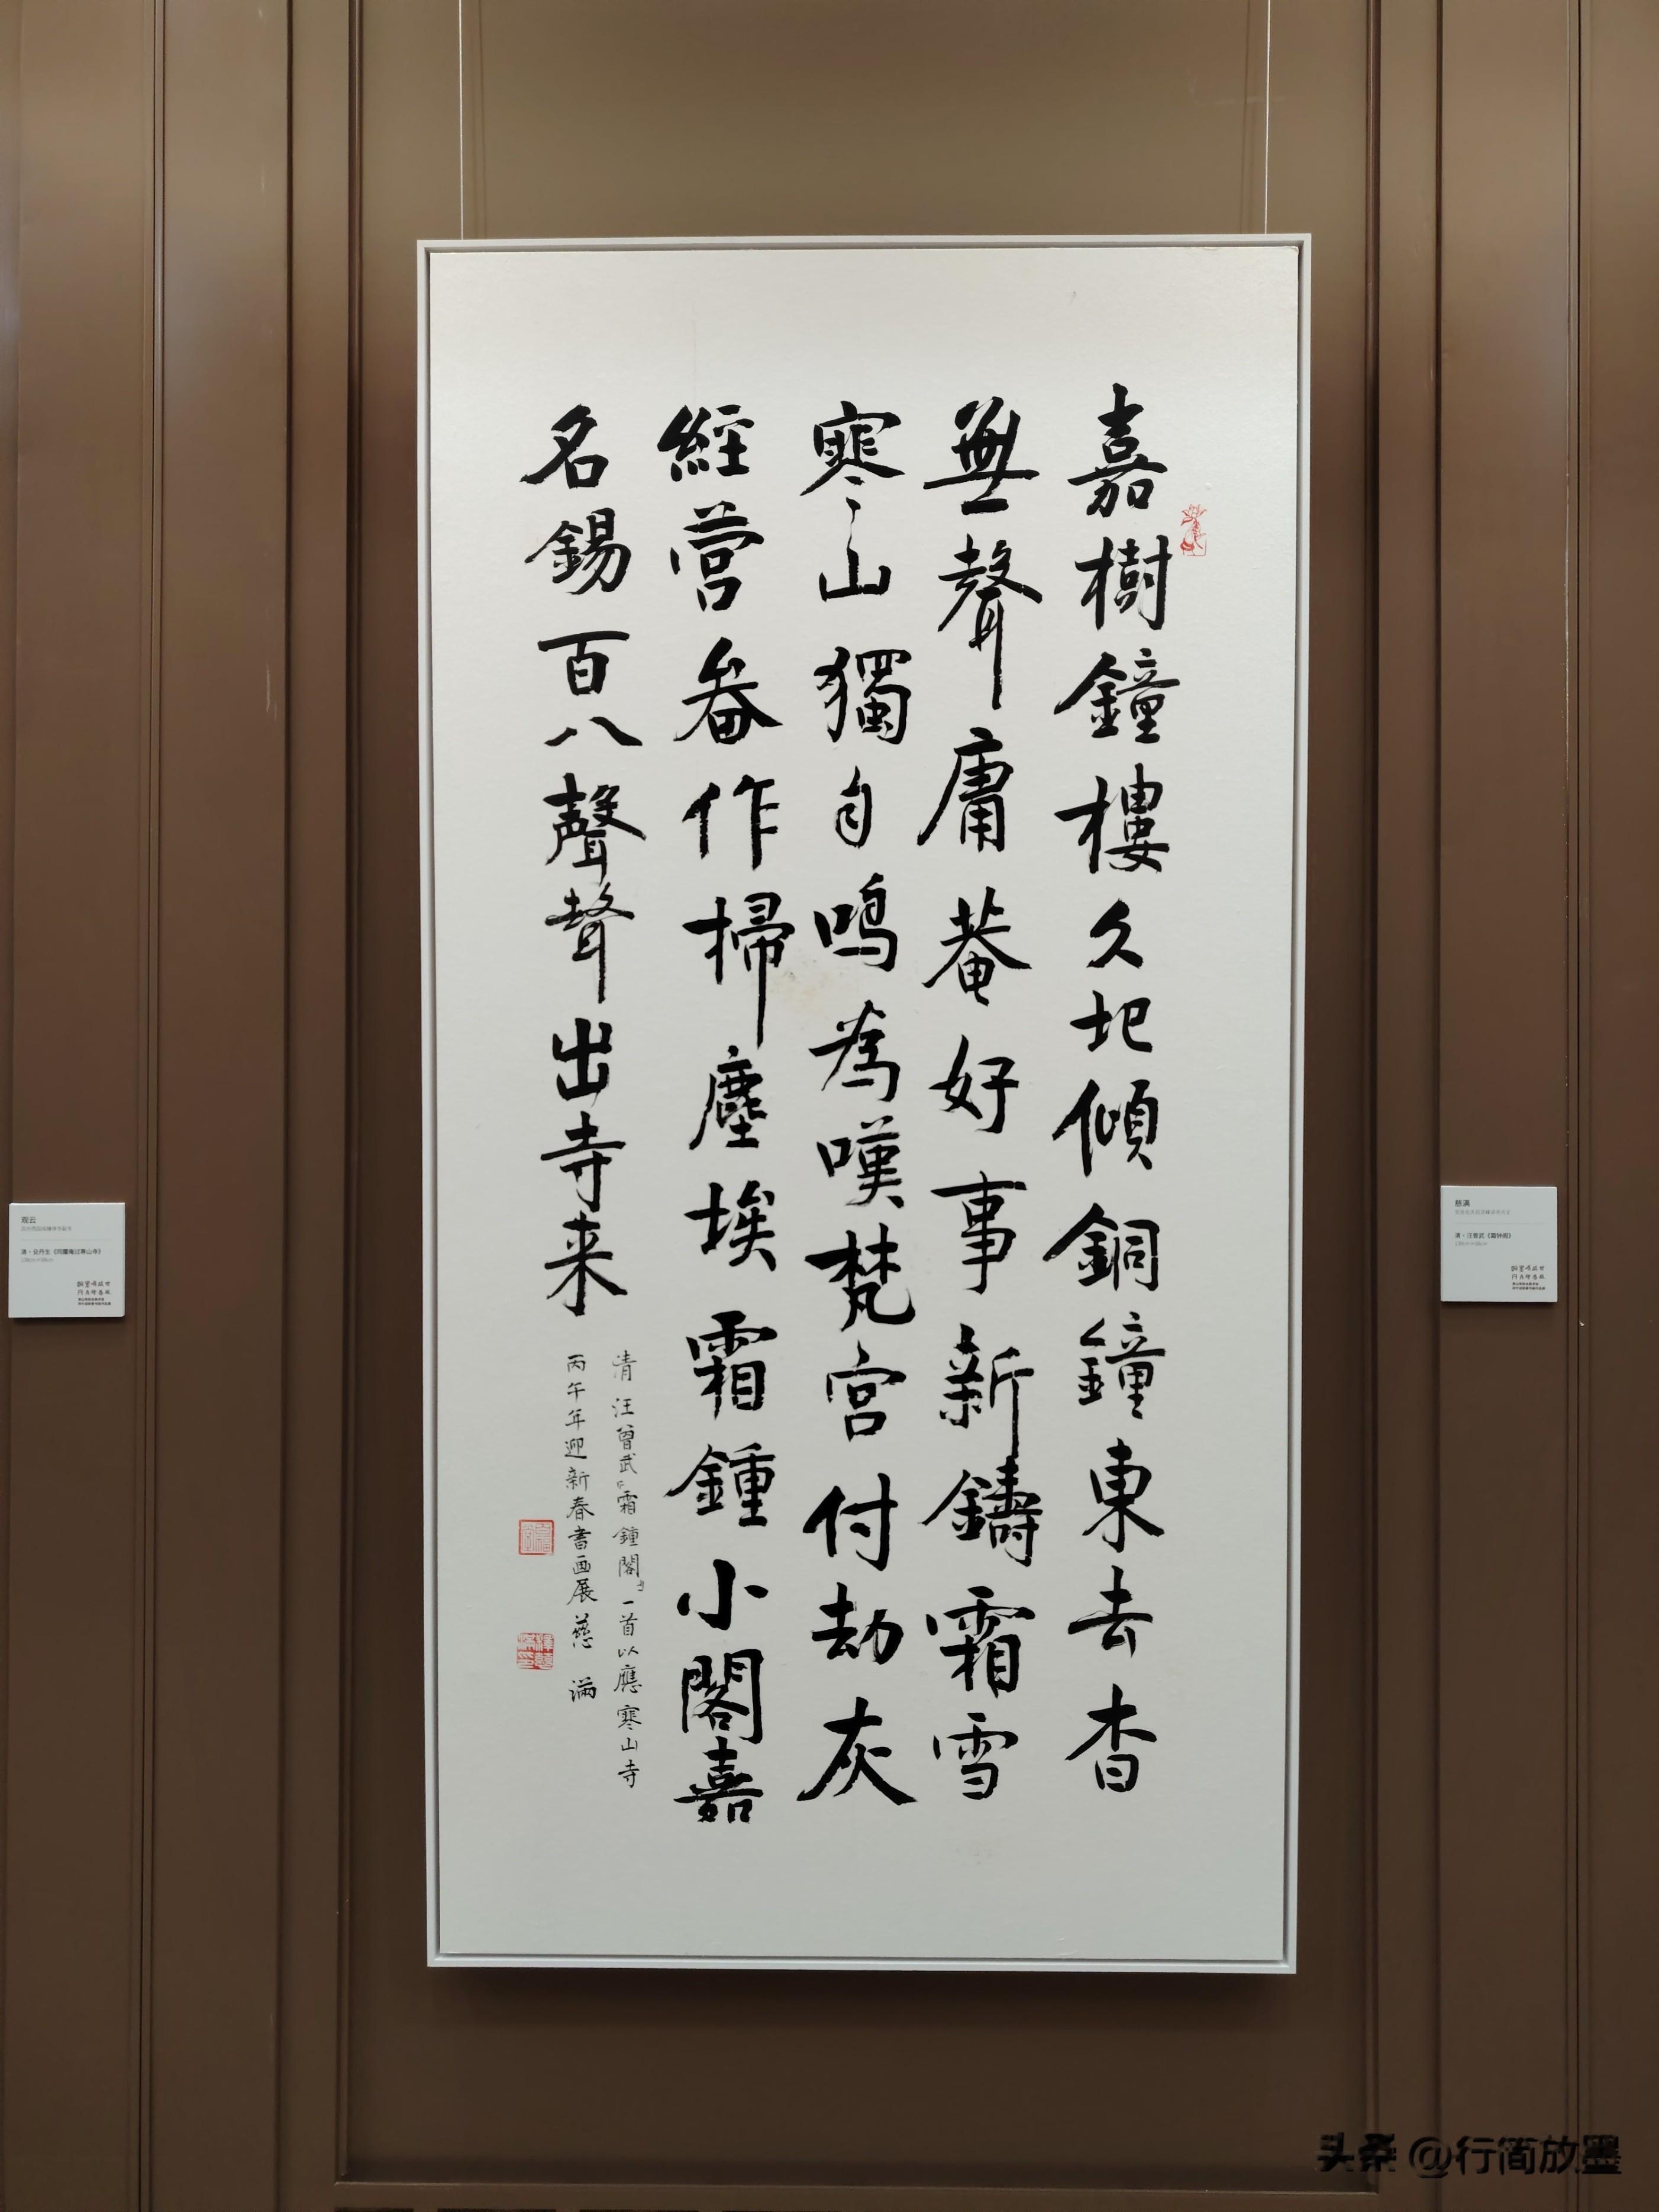 嘉樹鐘樓久圮傾銅鐘東去杳
無聲庸菴好事新鑄霜雪
寒山獨自鳴為嘆梵宮付劫灰
經營畚作掃塵埃霜鍾小閣嘉
名錫百八聲聲出寺来
清 汪曾武《霜鍾閣》一首以應寒山寺
丙午年迎新春書画展 慈滿
慈满
清·汪曾武《霜钟阁》
观云
头条 @行简放墨